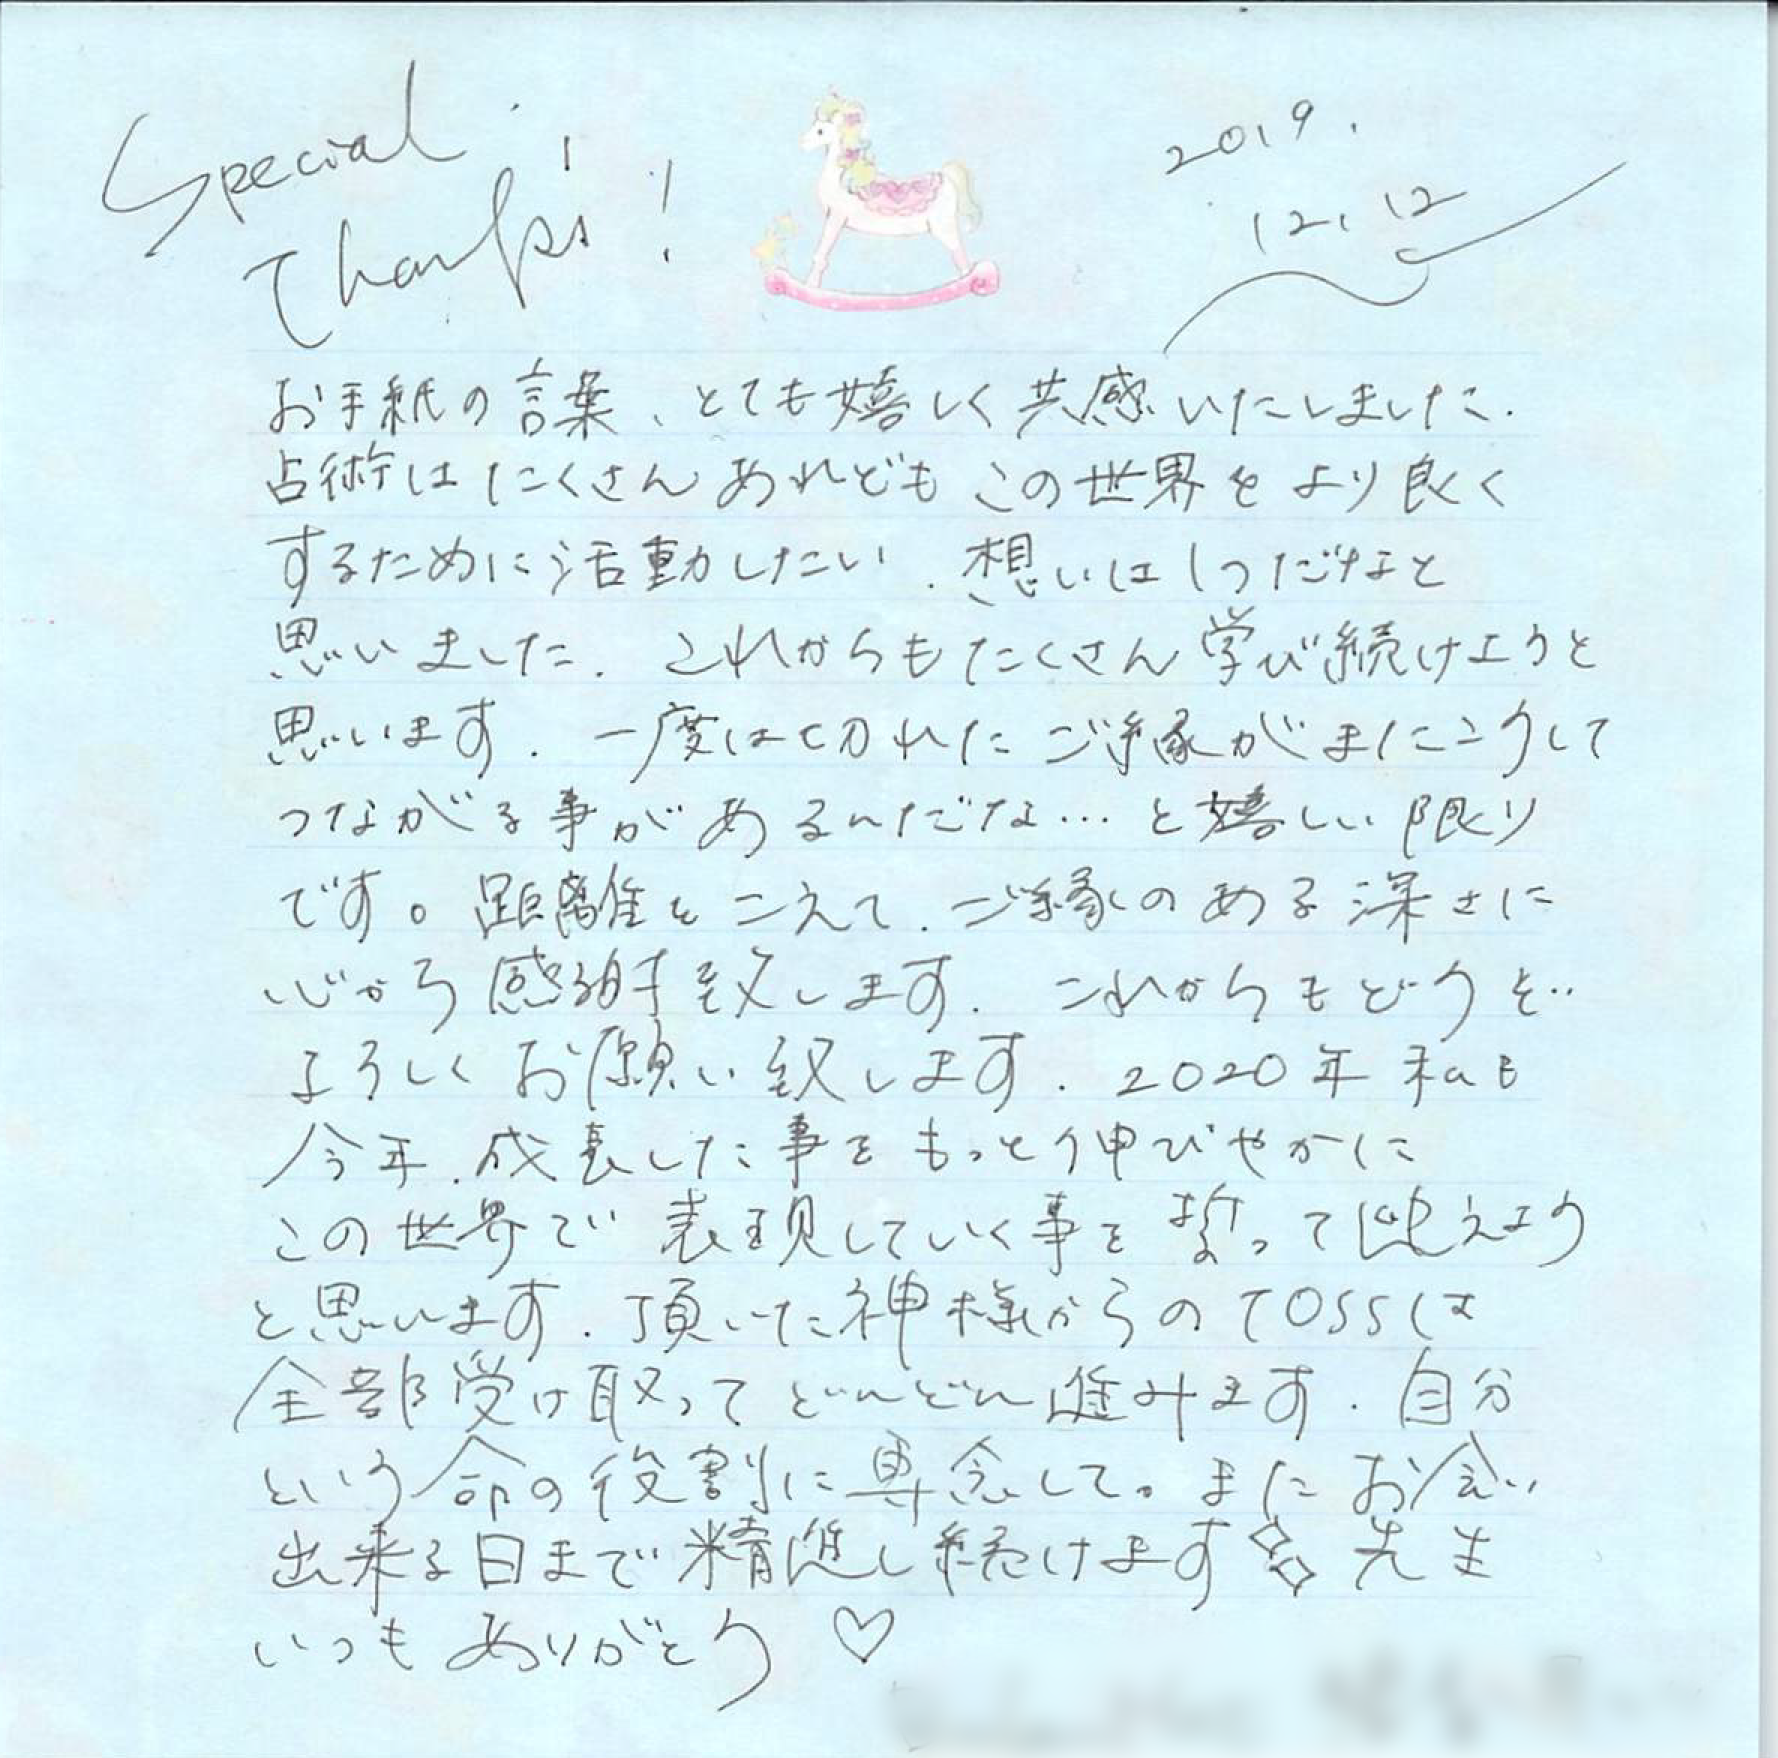 Special
Thanks!
2019.
12.12
お手紙の言葉、とても嬉しく共感いたしました.
占術はたくさんあれどもこの世界をより良く
するために活動したい. 想いは1つだなと
思いました. これからもたくさん学び続けようと
思います. 一度は切れたご縁がまたこうして
つながる事があるんだな…と嬉しい限り
です。距離をこえて. ご縁のある深さに
心から感謝致します. これからもどうぞ..
よろしくお願い致します. 2020年私も
今年. 成長した事をもっと伸びやかに
この世界で表現していく事を誓って迎えよう
と思います. 頂いた神様からのTOSSは
全部受け取ってどんどん進みます. 自分
という命の役割に専念して。またお会い
出来る日まで精進し続けます 先生
いつもありがとう♡